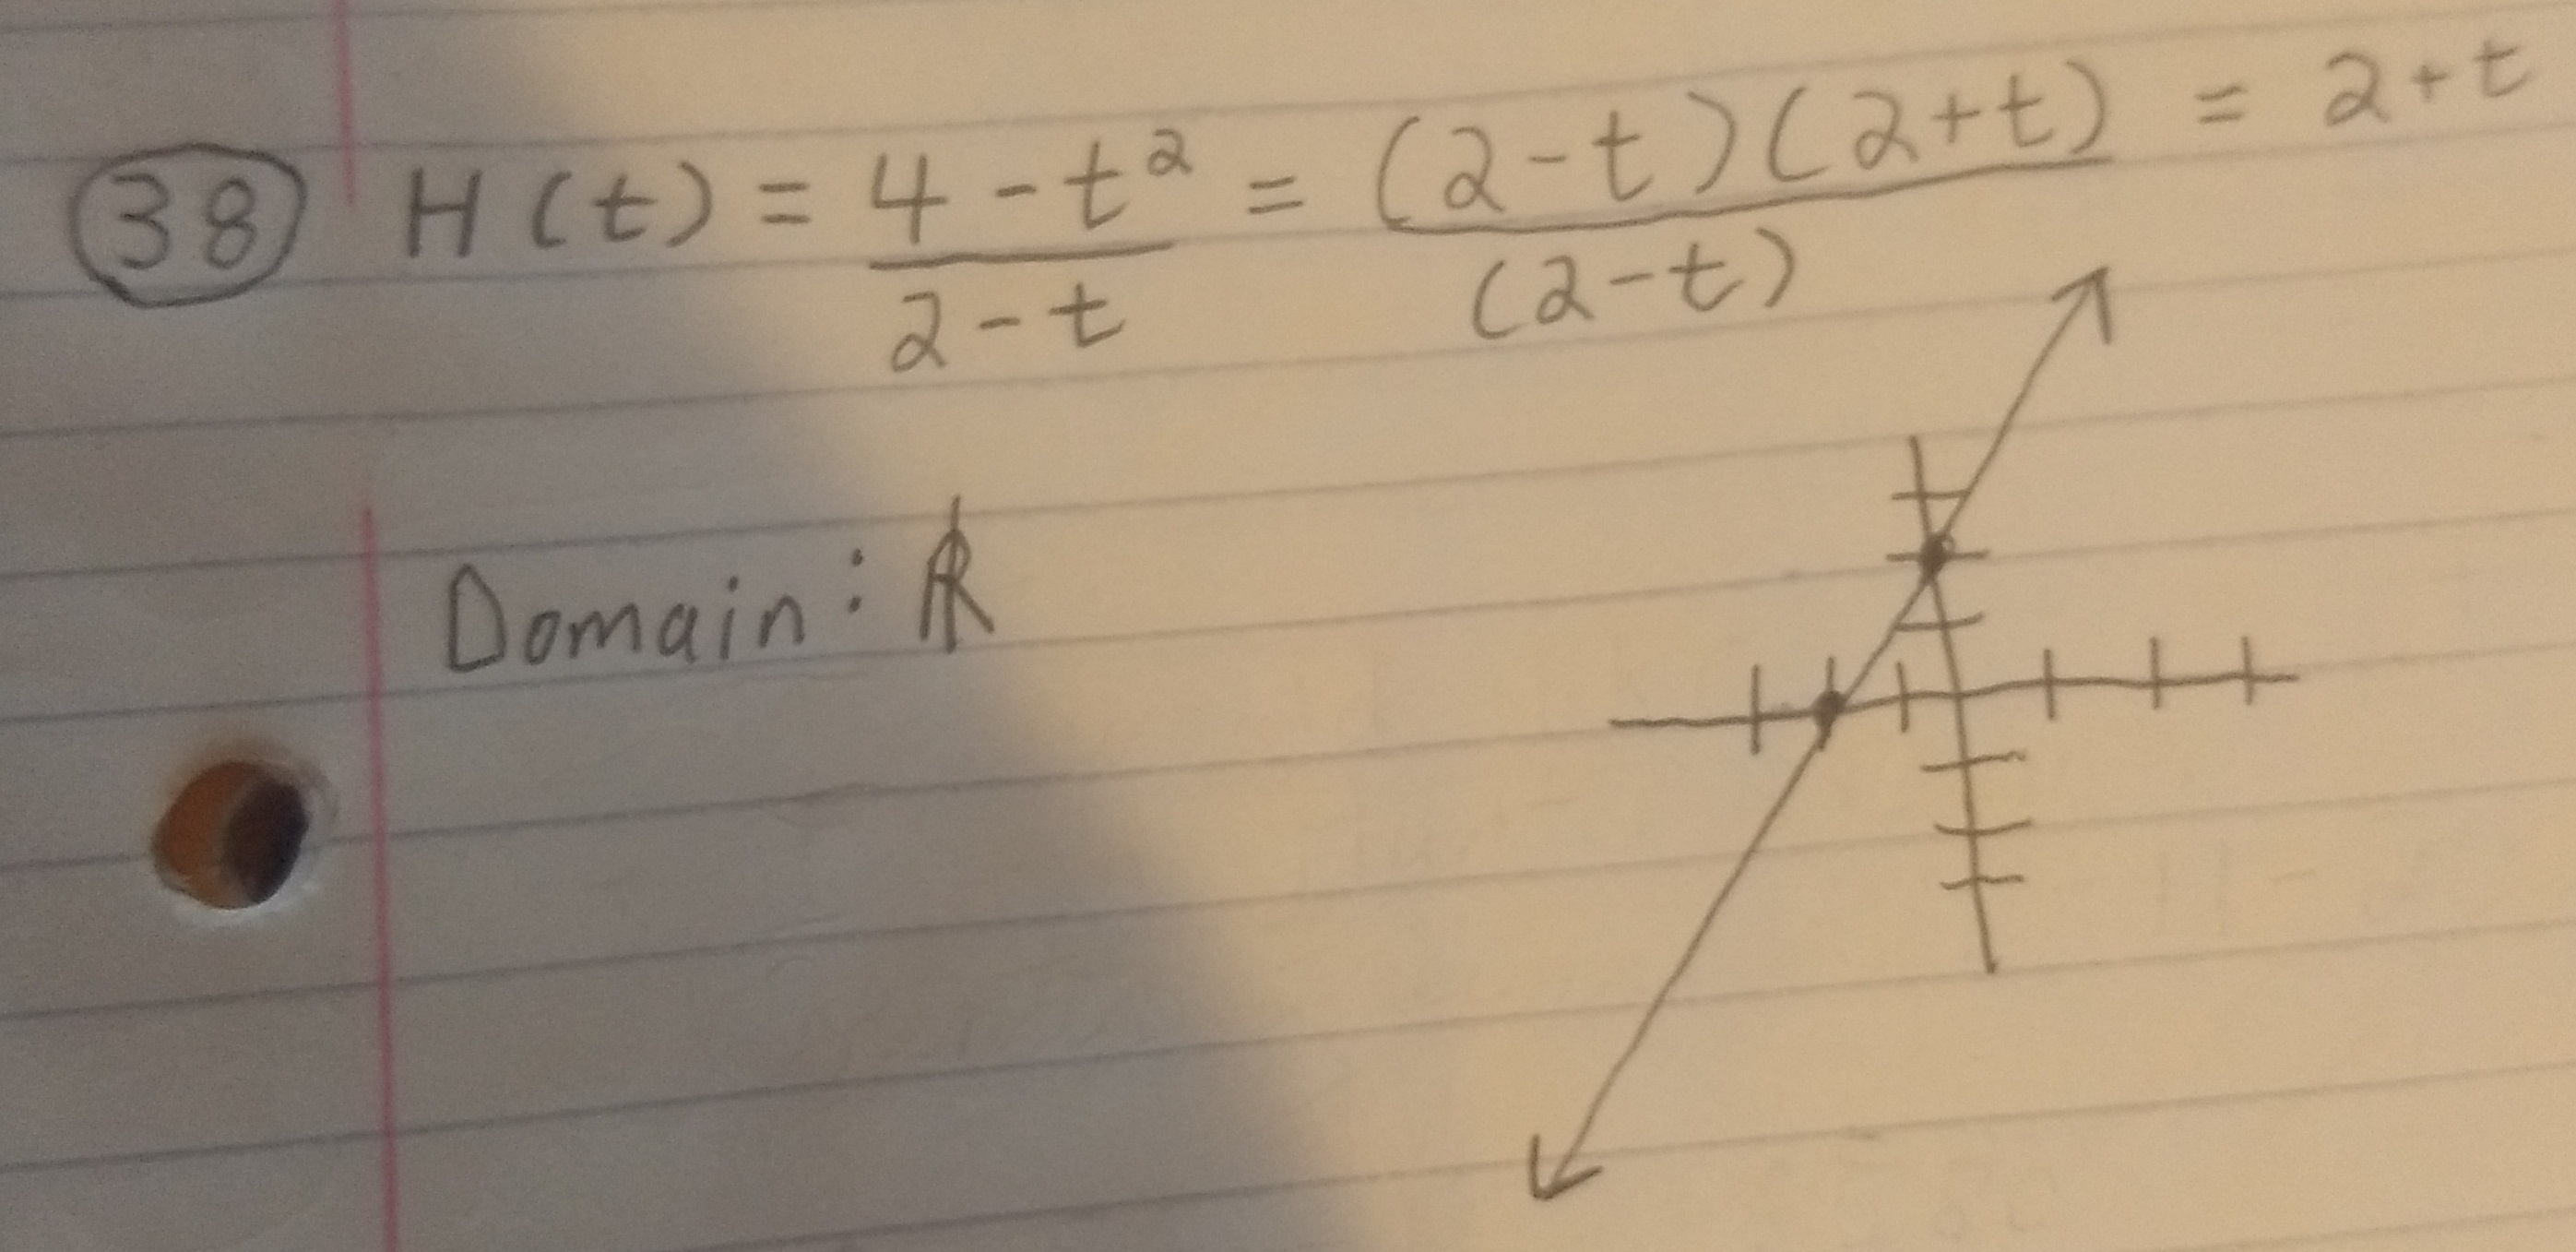 38 H(t) = 4 - t² / 2 - t = (2 - t)(2 + t) / (2 - t) = 2 + t
Domain: ℝ